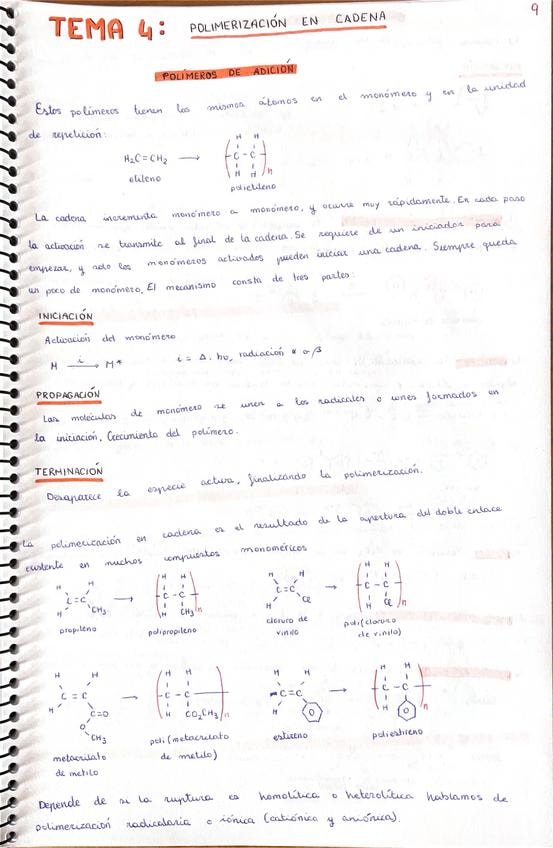 9
TEMA 4: POLIMERIZACIÓN EN CADENA
POLÍMEROS DE ADICIÓN
Estos polímeros tienen los mismos átomos en el monómero y en la unidad
de repetición:
H H
H₂C=CH₂ → (C-C)n
H H
etileno polietileno
La cadena incrementa monómero a monómero, y ocurre muy rápidamente. En cada paso
la activación se transmite al final de la cadena. Se requiere de un iniciador para
empezar, y solo los monómeros activados pueden iniciar una cadena. Siempre queda
un poco de monómero. El mecanismo consta de tres partes:
INICIACIÓN
Activación del monómero
M —i→ M* i = Δ, hν, radiación α o β
PROPAGACIÓN
Las moléculas de monómero se unen a los radicales o iones formados en
la iniciación. Crecimiento del polímero.
TERMINACIÓN
Desaparece la especie activa, finalizando la polimerización.
La polimerización en cadena es el resultado de la apertura del doble enlace
existente en muchos compuestos monoméricos
H H H H H H H H
C=C → (C-C)n C=C → (C-C)n
H CH₃ H CH₃ H Cl H Cl
propileno polipropileno cloruro de vinilo poli(cloruro de vinilo)
H H H H H H H H
C=C → (C-C)n C=C → (C-C)n
H C=O H CO₂CH₃ H
O
CH₃
metacrilato de metilo poli(metacrilato de metilo) estireno poliestireno
Depende de si la ruptura es homolítica o heterolítica hablamos de
polimerización radicalaria o iónica (catiónica y aniónica).